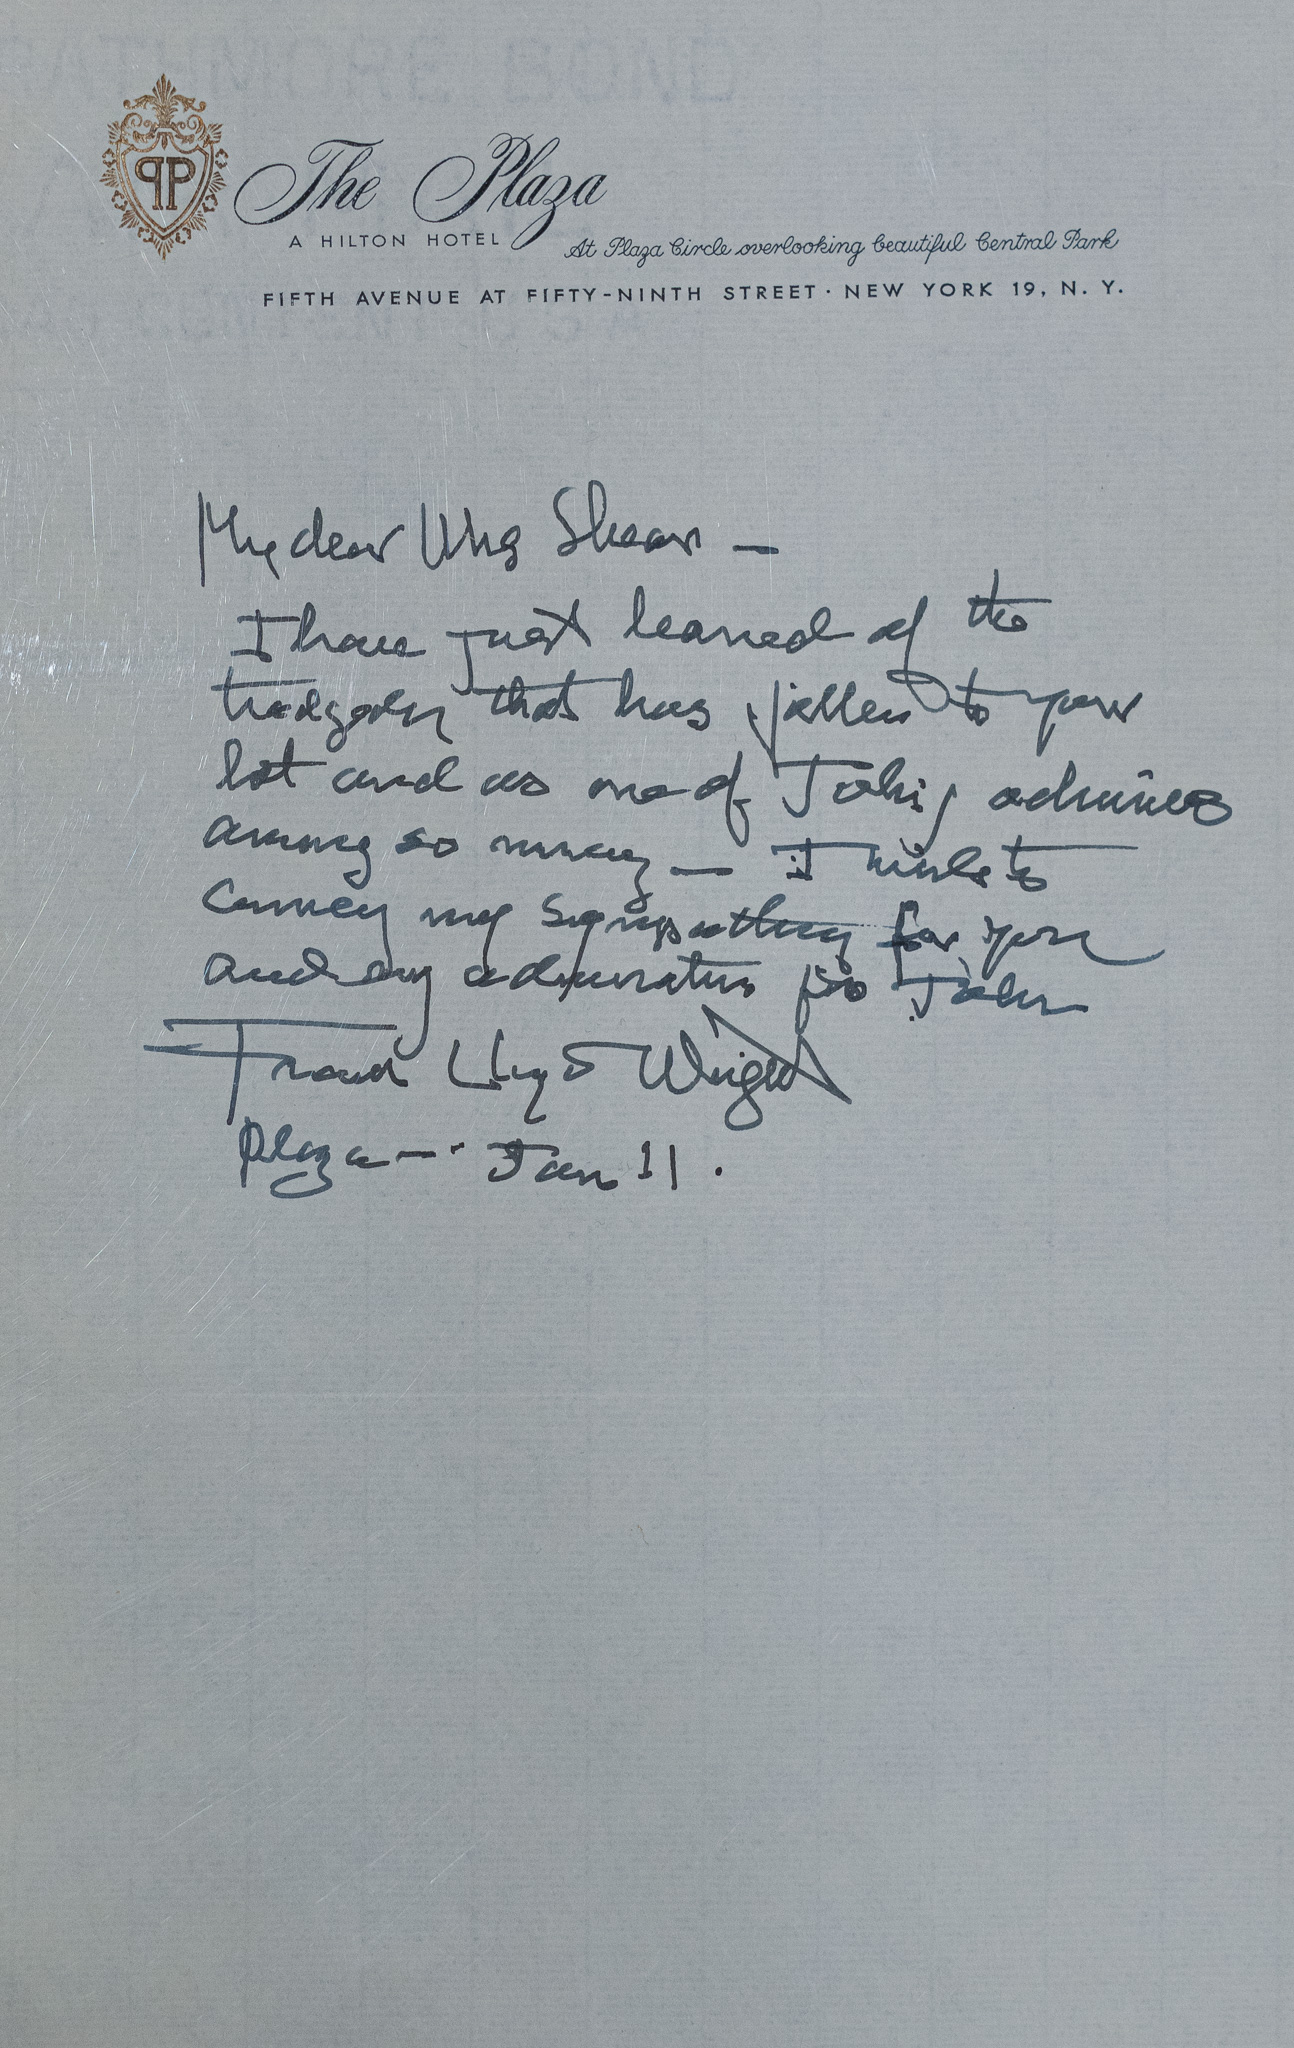 PP
The Plaza
A HILTON HOTEL
At Plaza Circle overlooking beautiful Central Park
FIFTH AVENUE AT FIFTY-NINTH STREET · NEW YORK 19, N. Y.
My dear Mrs Shear —
I have just learned of the
tradgedy that has fallen to your
lot and as one of John's admirers
among so many — I wish to
convey my sympathy for you
and my admiration for John
Frank Lloyd Wright
Plaza — Jan 11.